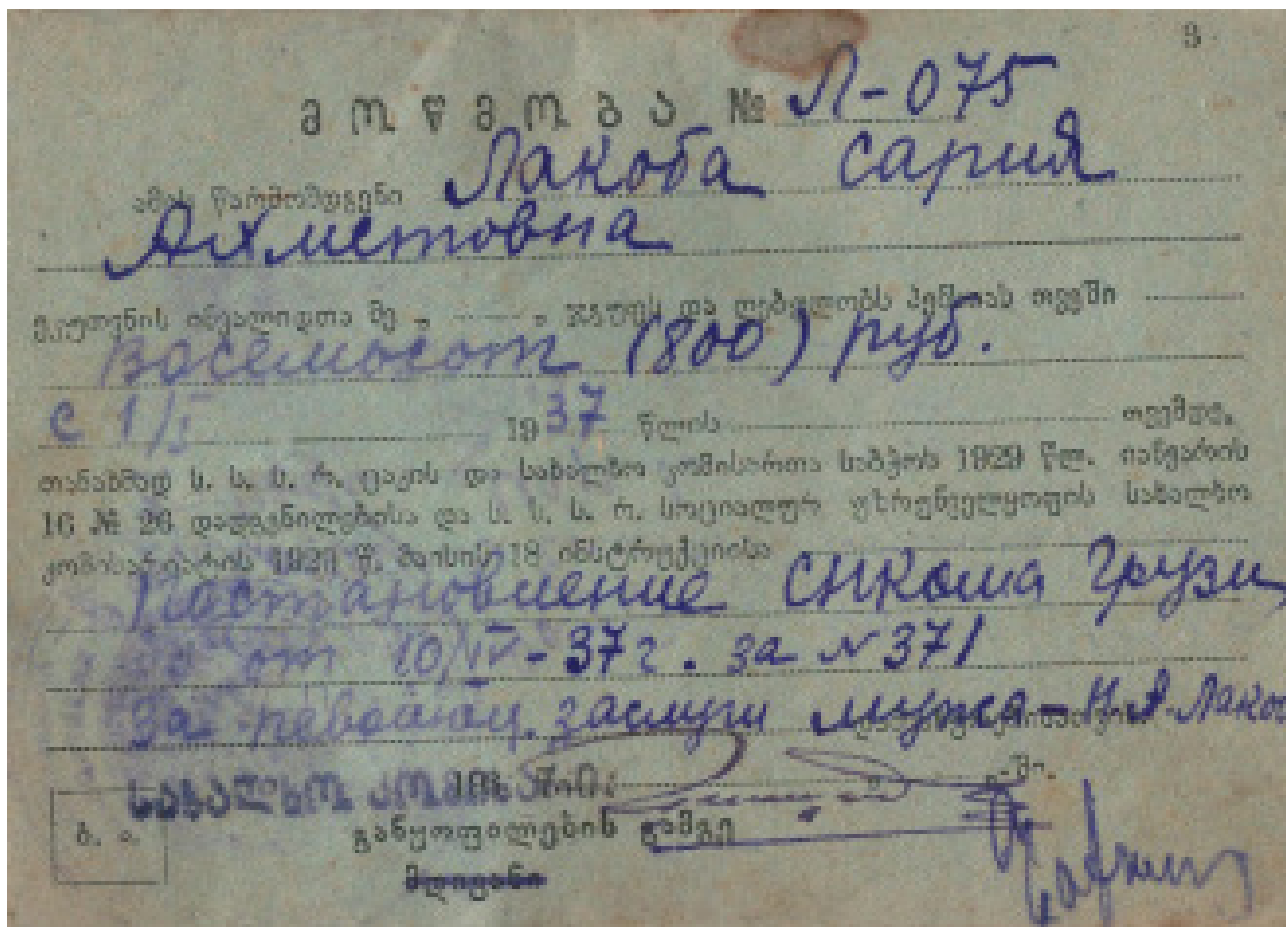 3
მოწმობა № Л-075
ამის წარმომდგენი Лакоба Сария
Ахметовна
ეკუთვნის ინვალიდთა მე „ “ ჯგუფს და ღებულობს პენსიას თვეში
восемьсот (800) руб.
с 1/I 1937 წლის თვემდე.
თანახმად ს. ს. ს. რ. ცაკის და სახალხო კომისართა საბჭოს 1929 წლ. იანვარის
16 № 26 დადგენილებისა და ს. ს. ს. რ. სოციალურ უზრუნველყოფის სახალხო
კომისარიატის 1929 წ. მაისის 18 ინსტრუქციისა
Постановление СНКома Грузи
от 10/IV-37г. за №371
За заслуги мужа-Н.А. Лакоб
სახალხო კომისარი
ბ. ა. განყოფილების გამგე
მდივანი